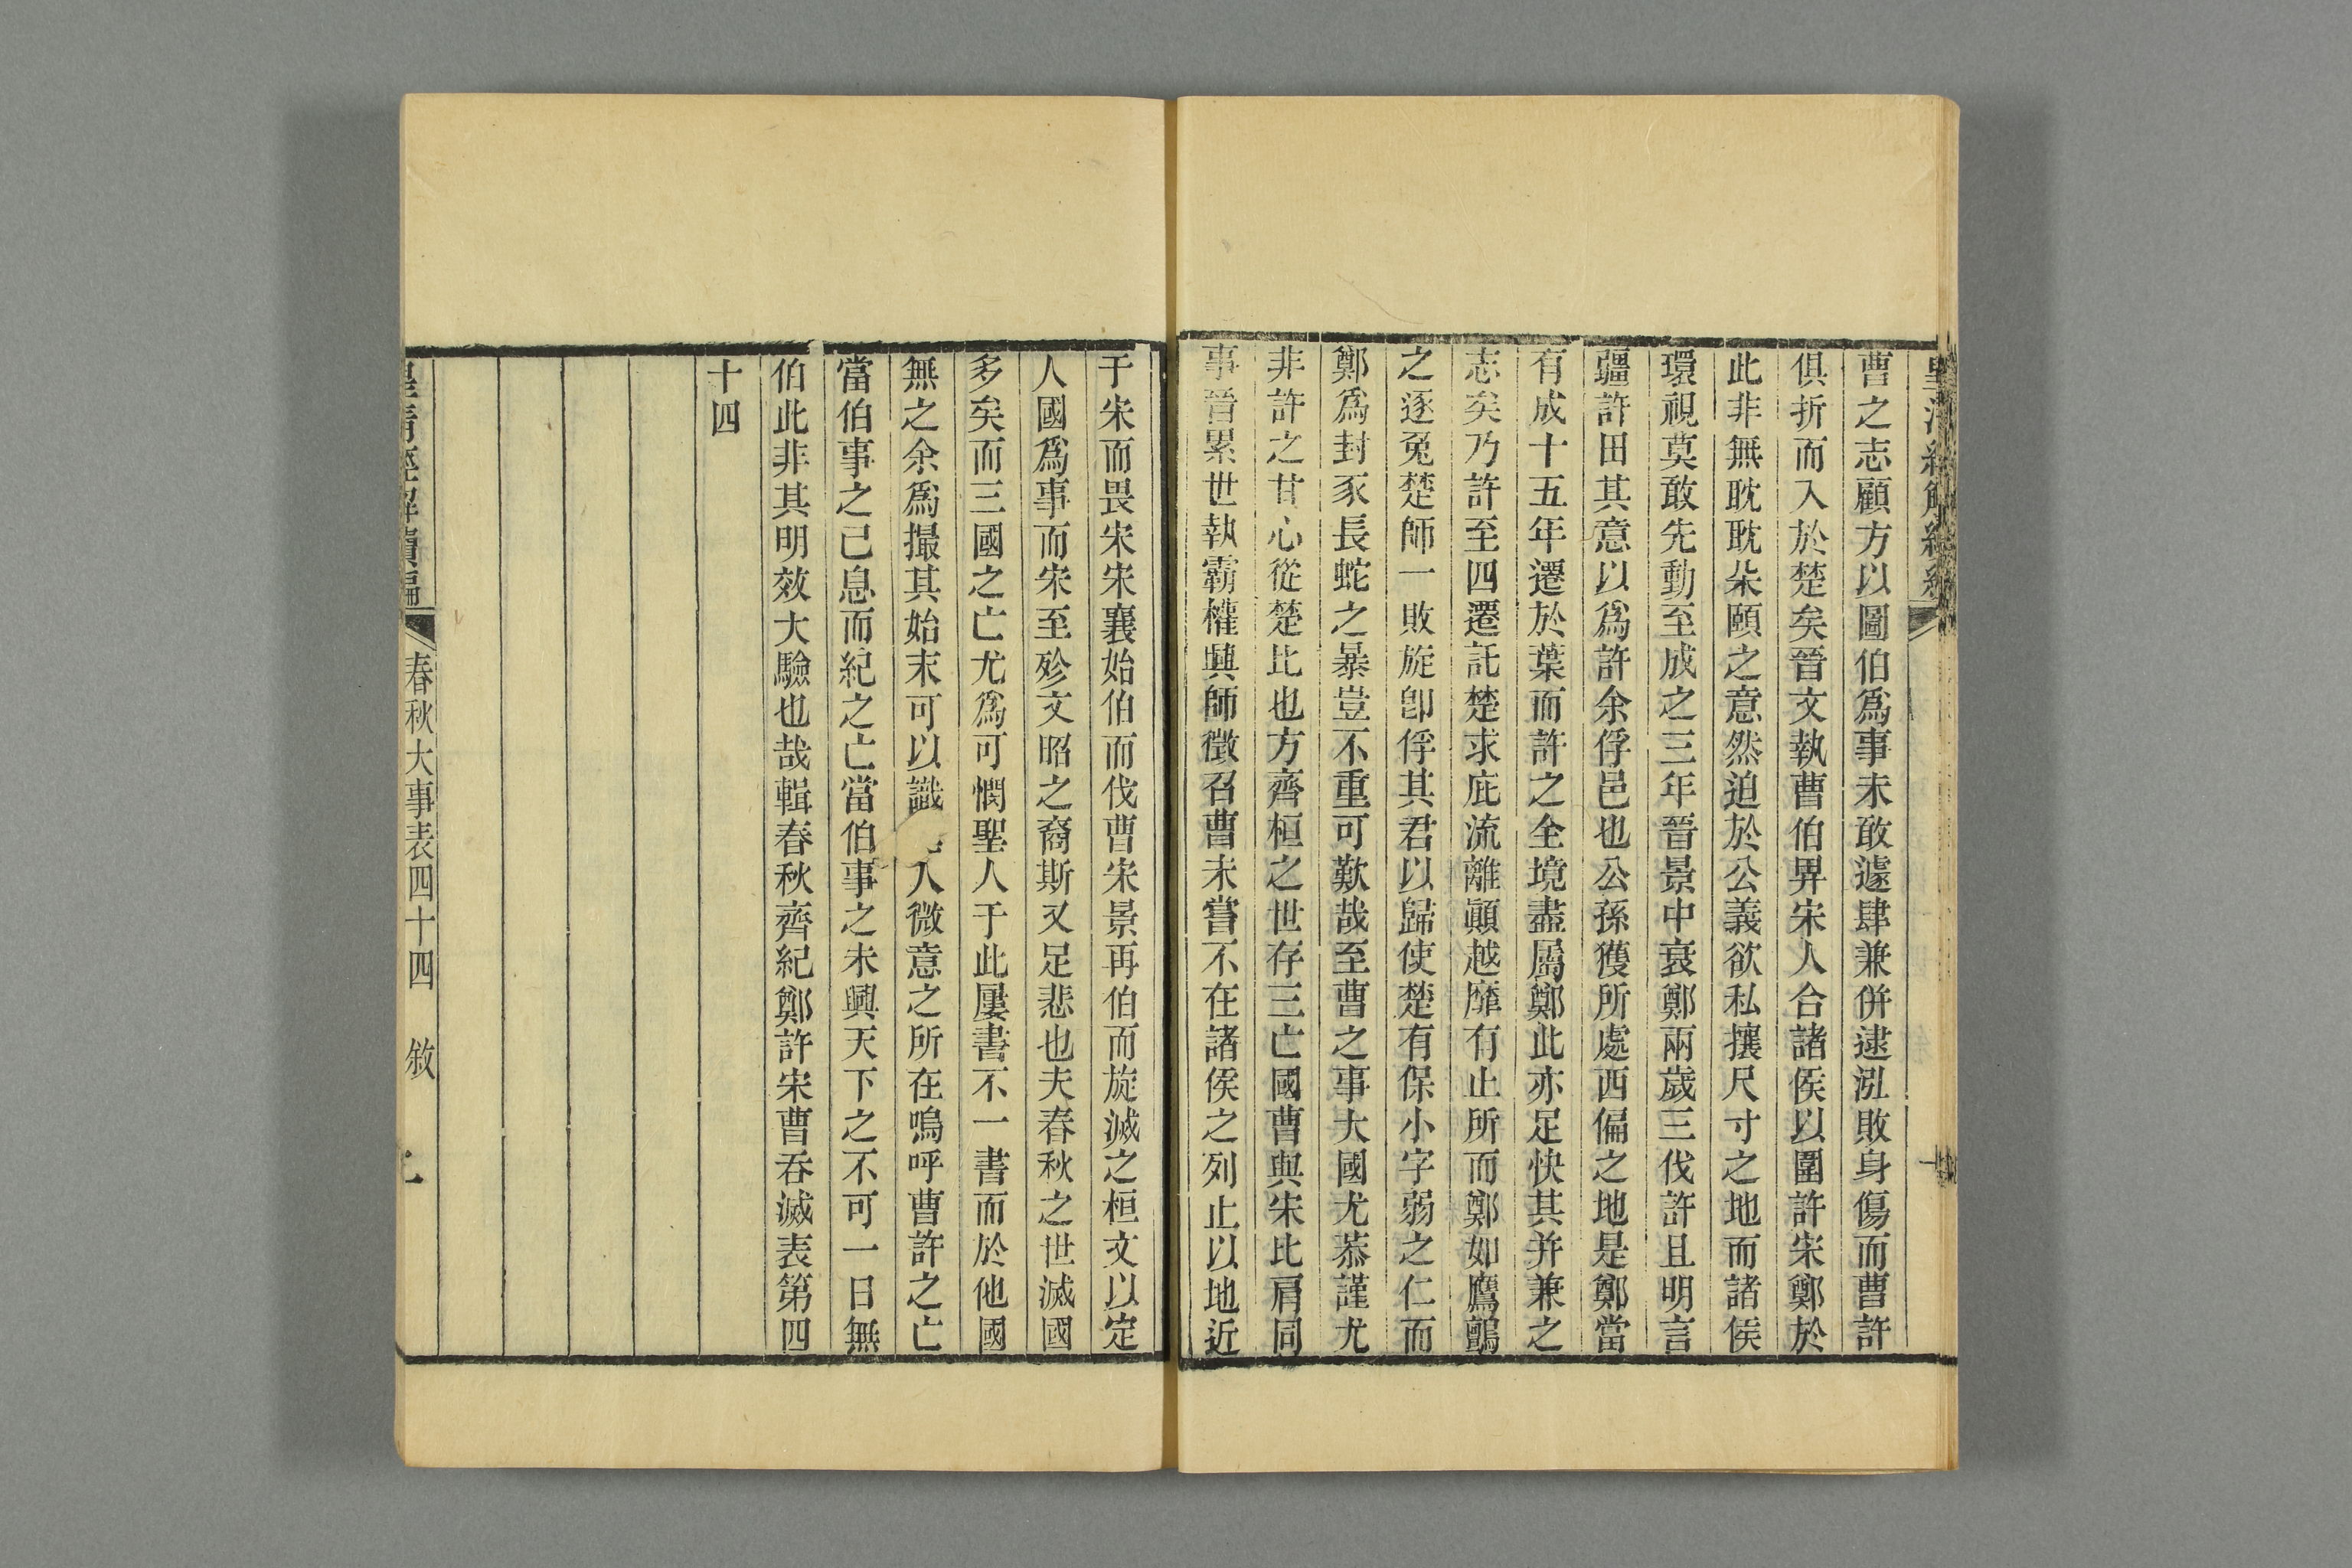 曹之志顧方以圖伯爲事未敢遽肆兼併逮泓敗身傷而曹許
俱折而入於楚矣晉文執曹伯畀宋人合諸侯以圍許宋鄭於
此非無耽耽朵頤之意然迫於公義欲私攘尺寸之地而諸侯
環視莫敢先動至成之三年晉景中衰鄭兩歲三伐許且明言
疆許田其意以爲許余俘邑也公孫獲所處西偏之地是鄭當
有成十五年遷於葉而許之全境盡屬鄭此亦足快其并兼之
志矣乃許至四遷託楚求庇流離顚越靡有止所而鄭如鷹鸇
之逐兔楚師一敗旋卽俘其君以歸使楚有保小字弱之仁而
鄭爲封豕長蛇之暴豈不重可歎哉至曹之事大國尤恭謹尤
非許之甘心從楚比也方齊桓之世存三亡國曹與宋比肩同
事晉累世執霸權興師徵召曹未嘗不在諸侯之列止以地近
于宋而畏宋宋襄始伯而伐曹宋景再伯而旋滅之桓文以定
人國爲事而宋至殄文昭之裔斯又足悲也夫春秋之世滅國
多矣而三國之亡尤爲可憫聖人于此屢書不一書而於他國
無之余爲撮其始末可以識人微意之所在嗚呼曹許之亡
當伯事之已息而紀之亡當伯事之未興天下之不可一日無
伯此非其明效大驗也哉輯春秋齊紀鄭許宋曹吞滅表第四
十四
皇清經解續編 春秋大事表四十四 敘